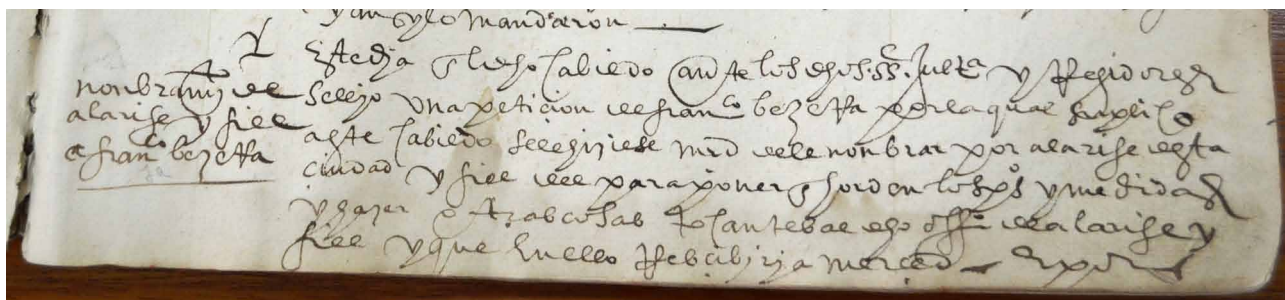 y ansy lo mandaron
nonbramyº de
alarife y fiel
a franco bezerra
Este dia y en el dho cabildo ante los dhos ss. justa y Regidores
se leyo una peticion de franco bezerra por la qual suplico
a este cabildo se le hiziese mrd de le nonbrar por alarife desta
ciudad y fiel della para poner horden los pos y medidas
y hazer otras cosas tocantes al dho offo de alarife y
fiel y que en ello Resebiria merced